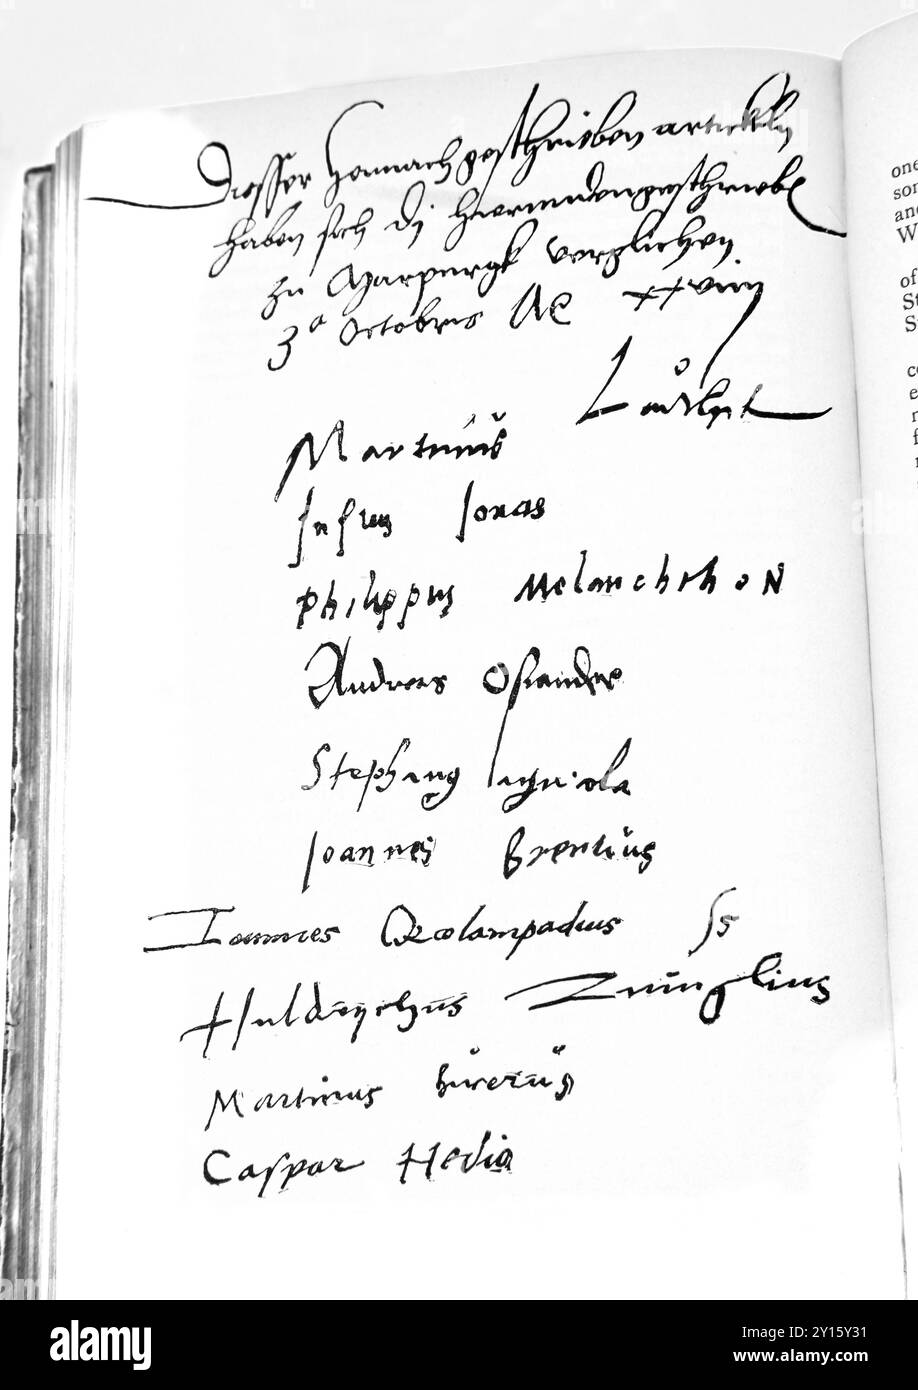 Diesser hernach geschrieben artickeln
haben sich di hierundengeschriebe
zu Marpurgk verglichen
3ª Octobris Aᵒ xxviiij
Martinus Luther
Justus Jonas
Philippus Melanchthon
Andreas Osiander
Stephanus Agricola
Joannes Brentius
Ioannes Œcolampadius ss
Huldrychus Zuinglius
Martinus Bucerus
Caspar Hedio
one
son
and
W
of
St
S
c
e
r
f
alamy
Image ID: 2Y15Y31
www.alamy.com